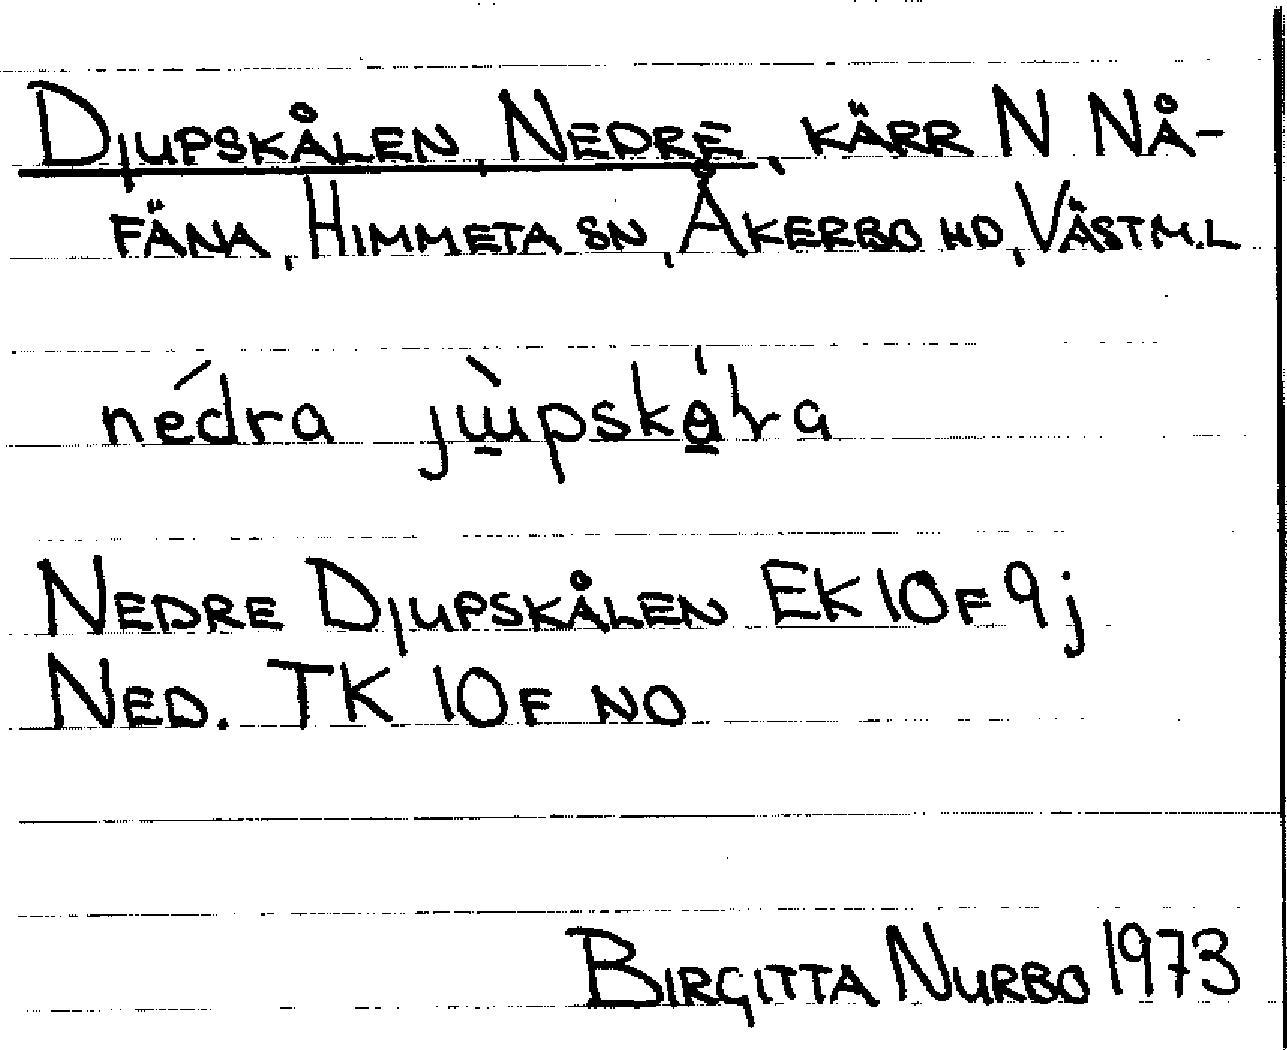 DJUPSKÅLEN, NEDRE, KÄRR N NÅ-
FÄNA, HIMMETA SN, ÅKERBO HD, VÄSTM.L
nédra
NEDRE DJUPSKÅLEN EK 10F 9j
NED. TK 10F NO
BIRGITTA NURBO 1973